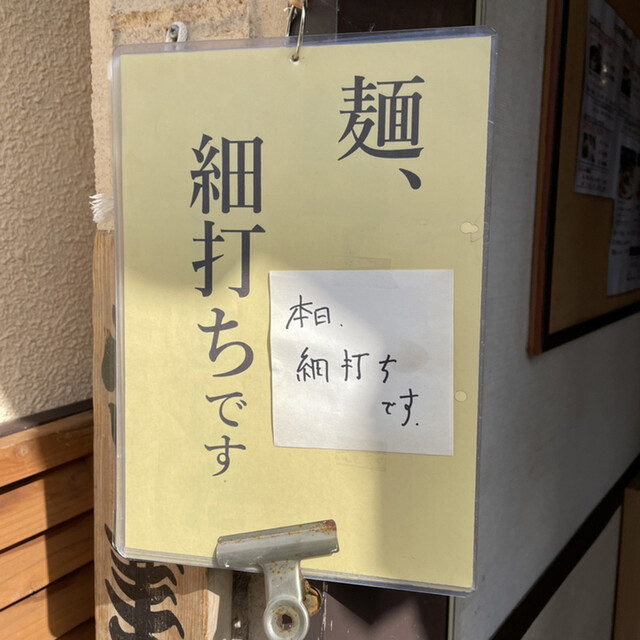 麺、
細打ちです
本日、
細打ち
です。